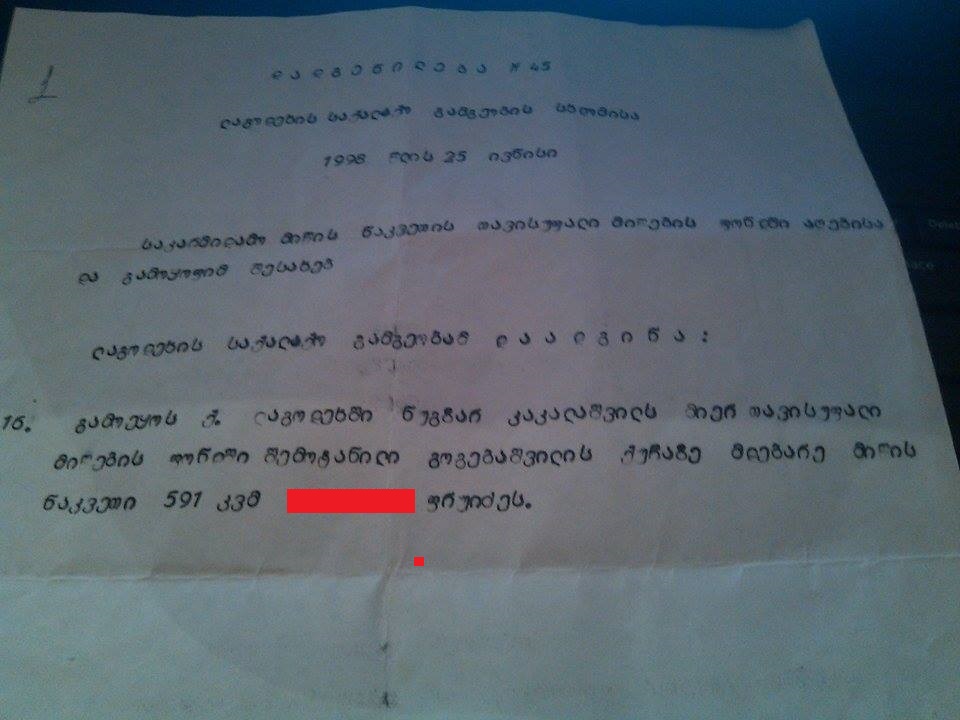 1
დ ა დ გ ე ნ ი ლ ე ბ ა № 45
ლაგოდეხის საქალაქო გამგეობის სხდომისა
1998 წლის 25 ივნისი
საკარმიდამო მიწის ნაკვეთის თავისუფალი მიწების ფონდში აღებისა
და გამოყოფის შესახებ
ლაგოდეხის საქალაქო გამგეობამ დ ა ა დ გ ი ნ ა :
16. გამოეყოს ქ. ლაგოდეხში ნუგზარ კაკალაშვილს მიერ თავისუფალი
მიწების ფონდში შემოტანილი გოგებაშვილის ქუჩაზე მდებარე მიწის
ნაკვეთი 591 კვმ ფრუიძეს.